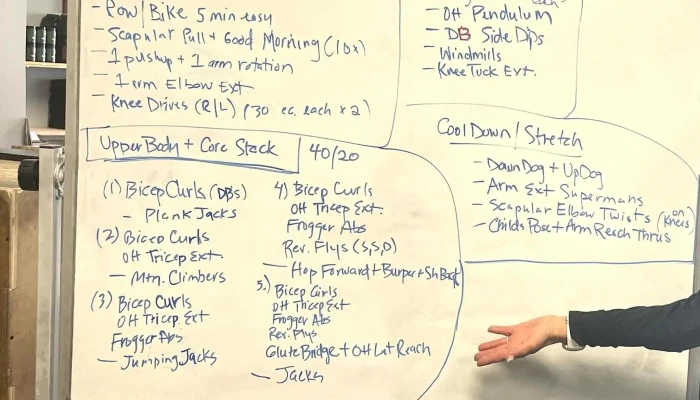 - Row/Bike 5 min easy
- Scapular Pull + Good Morning (10x)
- 1 pushup + 1 arm rotation
- 1 arm Elbow Ext
- Knee Drives (R/L) (30 ec. each x 2)
Upper Body + Core Stack 40/20
(1) Bicep Curls (DBs)
- Plank Jacks
(2) Bicep Curls
OH Tricep Ext.
- Mtn. Climbers
(3) Bicep Curls
OH Tricep Ext
Frogger Abs
- Jumping Jacks
4) Bicep Curls
OH Tricep Ext.
Frogger Abs
Rev. Flys (S,S,D)
- Hop Forward + Burpee + Sh Back
5.) Bicep Curls
OH Tricep Ext
Frogger Abs
Rev. Flys
Glute Bridge + OH Lat Reach
- Jacks
each -
- OH Pendulum
- DB Side Dips
- Windmills
- Knee Tuck Ext.
Cool Down/Stretch
- Down Dog + Up Dog
- Arm Ext Supermans
- Scapular Elbow Twists (on Knees)
- Childs Pose + Arm Reach Thrus